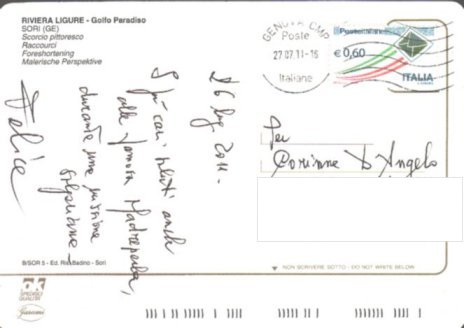 RIVIERA LIGURE - Golfo Paradiso
SORI (GE)
Scorcio pittoresco
Raccourci
Foreshortening
Malerische Perspektive
GENOVA CMP
Poste
27.07.11-16
Italiane
Posteitaliane
€ 0,60
ITALIA
26 lug 2011.
I più cari saluti anche
alla Madreperla,
durante una missione
Felice
Per
Corinne D'Angelo
B/SOR 5 - Ed. Ris. Badino - Sori
NON SCRIVERE SOTTO - DO NOT WRITE BELOW